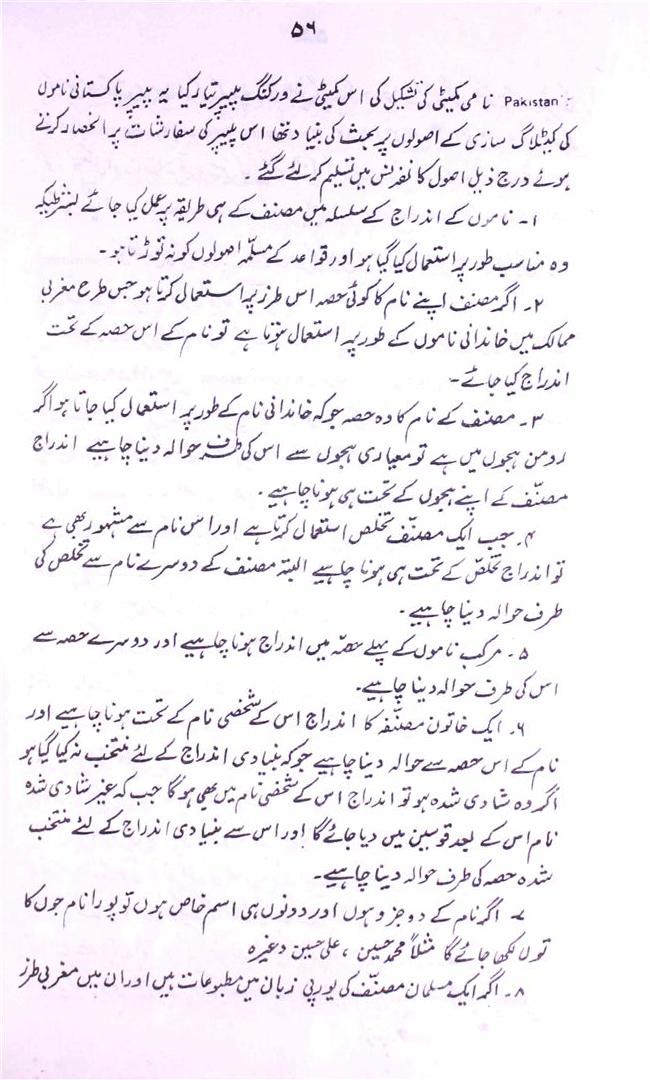 ۵۶
Pakistan" نامی کمیٹی کی تشکیل کی اس کمیٹی نے ورکنگ پیپر تیار کیا یہ پیپر پاکستانی ناموں
کی کیٹلاگ سازی کے اصولوں پر بحث کی بنیاد تھا اس پیپر کی سفارشات پر انحصار کرتے
ہوئے درج ذیل اصول کانفرنس میں تسلیم کر لئے گئے ۔
۱۔ ناموں کے اندراج کے سلسلہ میں مصنف کے ہی طریقہ پر عمل کیا جائے بشرطیکہ
وہ مناسب طور پر استعمال کیا گیا ہو اور قواعد کے مسلّمہ اصولوں کو نہ توڑتا ہو۔
۲۔ اگر مصنف اپنے نام کا کوئی حصہ اس طرز پر استعمال کرتا ہو جس طرح مغربی
ممالک میں خاندانی ناموں کے طور پر استعمال ہوتا ہے تو نام کے اس حصہ کے تحت
اندراج کیا جائے۔
۳۔ مصنف کے نام کا وہ حصہ جو کہ خاندانی نام کے طور پر استعمال کیا جاتا ہو اگر
رومن ہجوں میں ہے تو معیاری ہجوں سے اس کی طرف حوالہ دینا چاہیے اندراج
مصنّف کے اپنے ہجوں کے تحت ہی ہونا چاہیے ۔
۴۔ جب ایک مصنّف تخلص استعمال کرتا ہے اور اس نام سے مشہور بھی ہے
تو اندراج تخلصّ کے تحت ہی ہونا چاہیے البتہ مصنف کے دوسرے نام سے تخلص کی
طرف حوالہ دینا چاہیے ۔
۵۔ مرکب ناموں کے پہلے حصّہ میں اندراج ہونا چاہیے اور دوسرے حصہ سے
اس کی طرف حوالہ دینا چاہیے۔
۶۔ ایک خاتون مصنّفہ کا اندراج اس کے شخصی نام کے تحت ہونا چاہیے اور
نام کے اس حصہ سے حوالہ دینا چاہیے جو کہ بنیادی اندراج کے لئے منتخب نہ کیا گیا ہو
اگر وہ شادی شدہ ہو تو اندراج اس کے شخصی نام میں بھی ہو گا جب کہ غیر شادی شدہ
نام اس کے بعد قوسین میں دیا جائے گا اور اس سے بنیادی اندراج کے لئے منتخب
شدہ حصہ کی طرف حوالہ دینا چاہیے۔
۷۔ اگر نام کے دو جزو ہوں اور دونوں ہی اسم خاص ہوں تو پورا نام جوں کا
توں لکھا جائے گا مثلاً محمد حسین ، علی حسین وغیرہ
۸۔ اگر ایک مسلمان مصنّف کی یورپی زبان میں مطبوعات ہیں اور ان میں مغربی طرز